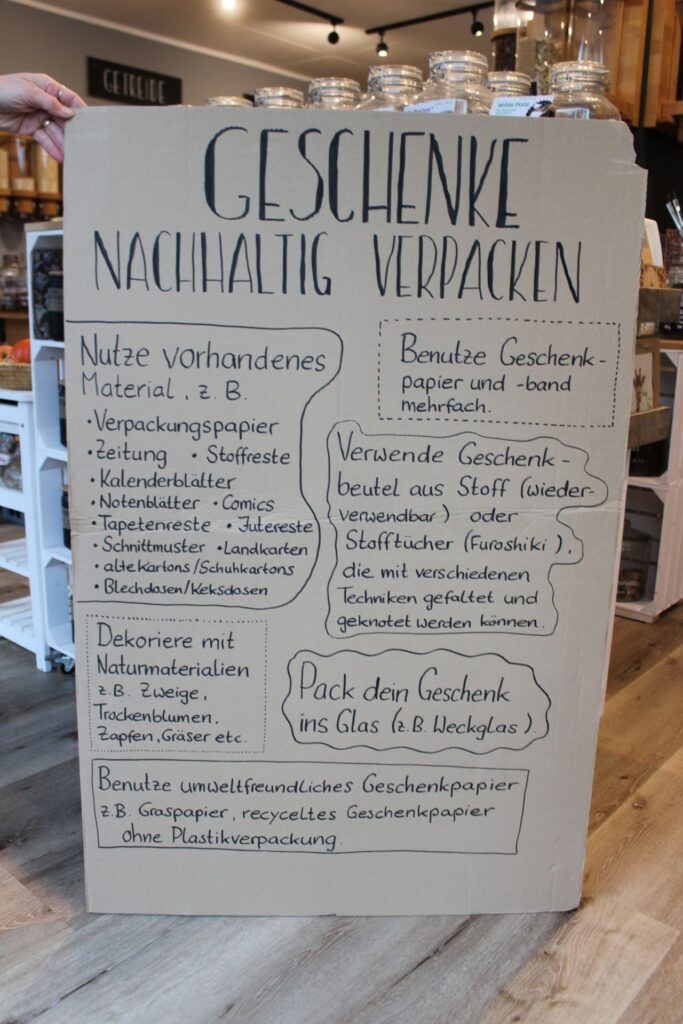 GETREIDE
Wilde Nüsse
GESCHENKE
NACHHALTIG VERPACKEN
Nutze vorhandenes
Material, z. B.
• Verpackungspapier
• Zeitung • Stoffreste
• Kalenderblätter
• Notenblätter • Comics
• Tapetenreste • Jutereste
• Schnittmuster • Landkarten
• alte Kartons/Schuhkartons
• Blechdosen/Keksdosen
Benutze Geschenk-
papier und -band
mehrfach.
Verwende Geschenk-
beutel aus Stoff (wieder-
verwendbar) oder
Stofftücher (Furoshiki),
die mit verschiedenen
Techniken gefaltet und
geknotet werden können.
Dekoriere mit
Naturmaterialien
z.B. Zweige,
Trockenblumen,
Zapfen, Gräser etc.
Pack dein Geschenk
ins Glas (z.B. Weckglas).
Benutze umweltfreundliches Geschenkpapier
z.B. Graspapier, recyceltes Geschenkpapier
ohne Plastikverpackung.